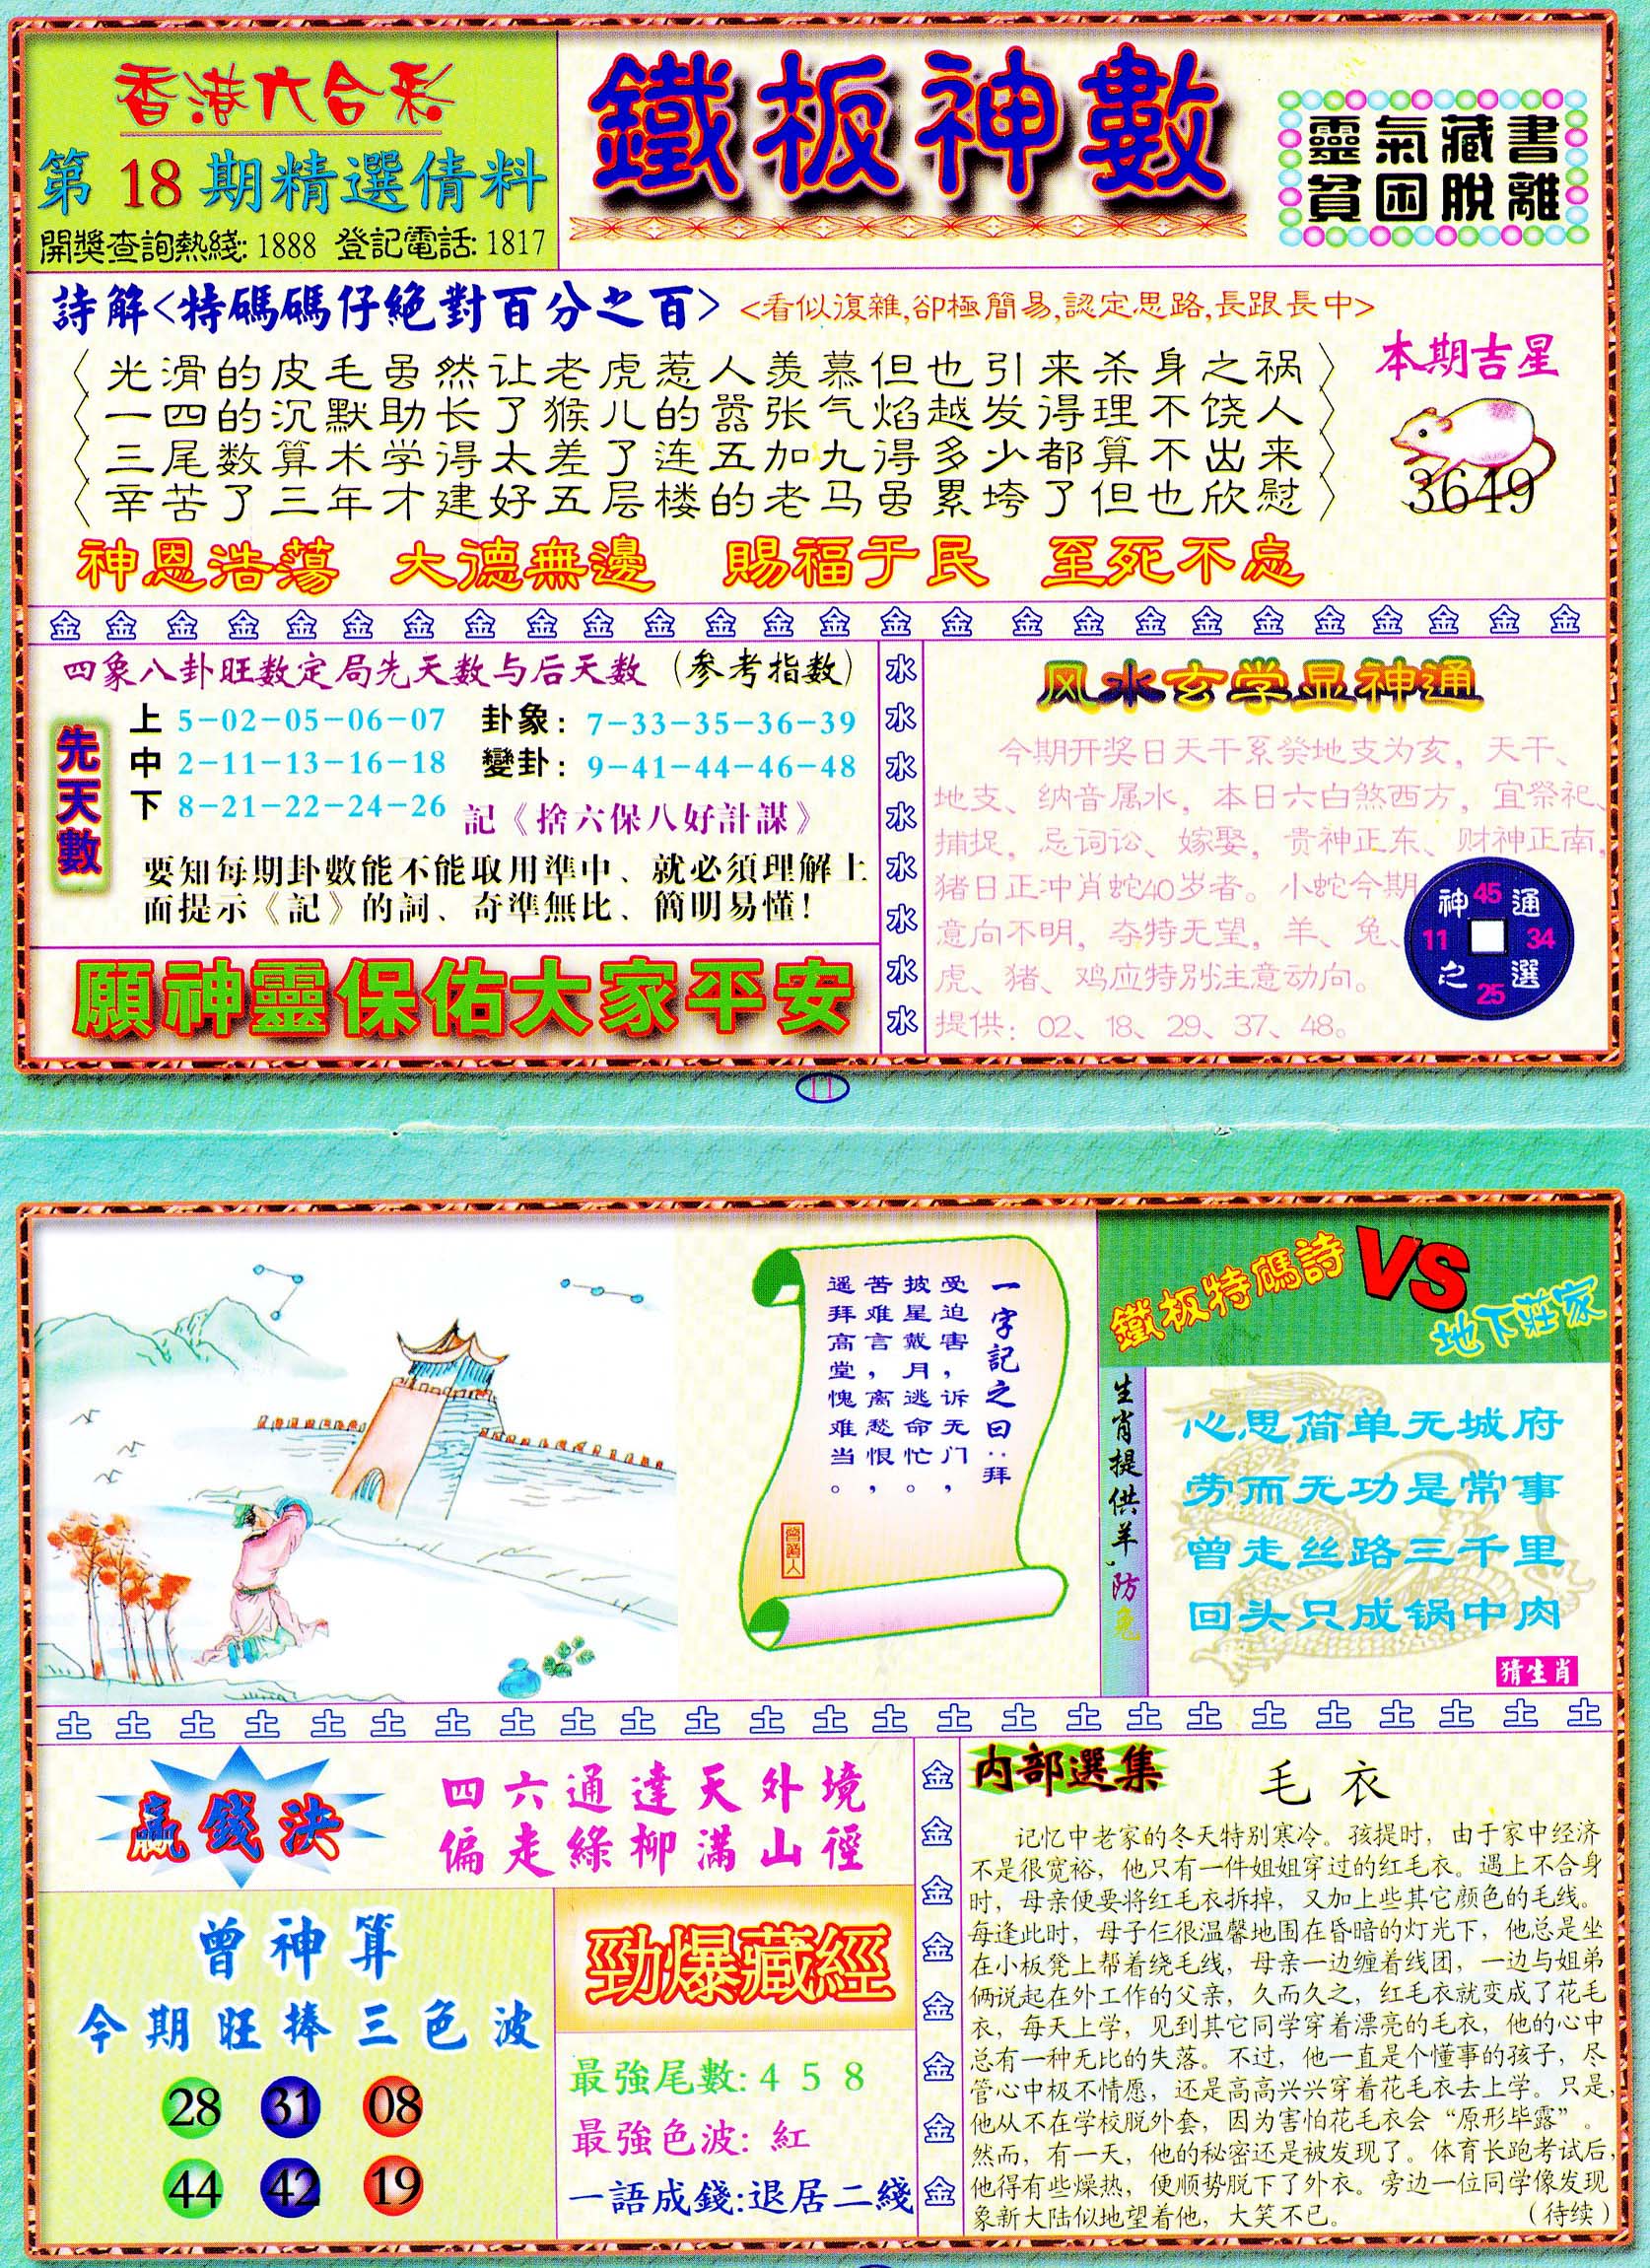 香港六合彩
第18期精選倩料
開獎查詢熱綫: 1888 登記電話: 1817
鐵板神數
靈氣藏書
貧困脫離
詩解<特碼碼仔絕對百分之百> <看似復雜,卻極簡易,認定思路,長跟長中>
光滑的皮毛虽然让老虎惹人羡慕但也引来杀身之祸
一四的沉默助长了猴儿的嚣张气焰越发得理不饶人
三尾数算术学得太差了连五加九得多少都算不出来
辛苦了三年才建好五层楼的老马虽累垮了但也欣慰
本期吉星
3649
神恩浩蕩 大德無邊 賜福于民 至死不忘
金 金 金 金 金 金 金 金 金 金 金 金 金 金 金 金 金 金 金 金 金 金 金 金 金 金
四象八卦旺数定局先天数与后天数（参考指数）
先天數
上 5-02-05-06-07 卦象: 7-33-35-36-39
中 2-11-13-16-18 變卦: 9-41-44-46-48
下 8-21-22-24-26 記《捨六保八好計謀》
要知每期卦數能不能取用準中、就必須理解上
面提示《記》的詞、奇準無比、簡明易懂!
願神靈保佑大家平安
水
水
水
水
水
水
水
水
风水玄学显神通
今期开奖日天干系癸地支为亥，天干、
地支、纳音属水，本日六白煞西方，宜祭祀、
捕捉，忌词讼、嫁娶，贵神正东、财神正南，
猪日正冲肖蛇40岁者。小蛇今期
意向不明，夺特无望，羊、兔、
虎、猪、鸡应特别注意动向。
提供：02、18、29、37、48。
神 45 通
11 34
之 25 選
11
一字記之曰：拜
受迫害，诉无门，
披星戴月，逃命忙。
苦难言，离愁恨，
遥拜高堂，愧难当。
鐵板特碼詩 VS 地下莊家
生肖提供羊.防兔
心思简单无城府
劳而无功是常事
曾走丝路三千里
回头只成锅中肉
猜生肖
土 土 土 土 土 土 土 土 土 土 土 土 土 土 土 土 土 土 土 土 土 土 土 土 土
贏錢決
四六通達天外境
偏走綠柳滿山徑
曾神算
今期旺捧三色波
28 31 08
44 42 19
勁爆藏經
最強尾數: 4 5 8
最強色波: 紅
一語成錢:退居二綫
金
金
金
金
金
金
金
金
内部選集
毛衣
记忆中老家的冬天特别寒冷。孩提时，由于家中经济
不是很宽裕，他只有一件姐姐穿过的红毛衣。遇上不合身
时，母亲便要将红毛衣拆掉，又加上些其它颜色的毛线。
每逢此时，母子仨很温馨地围在昏暗的灯光下，他总是坐
在小板凳上帮着绕毛线，母亲一边缠着线团，一边与姐弟
俩说起在外工作的父亲，久而久之，红毛衣就变成了花毛
衣，每天上学，见到其它同学穿着漂亮的毛衣，他的心中
总有一种无比的失落。不过，他一直是个懂事的孩子，尽
管心中极不情愿，还是高高兴兴穿着花毛衣去上学。只是，
他从不在学校脱外套，因为害怕花毛衣会“原形毕露”。
然而，有一天，他的秘密还是被发现了。体育长跑考试后，
他得有些燥热，便顺势脱下了外衣。旁边一位同学像发现
象新大陆似地望着他，大笑不已。 （待续）